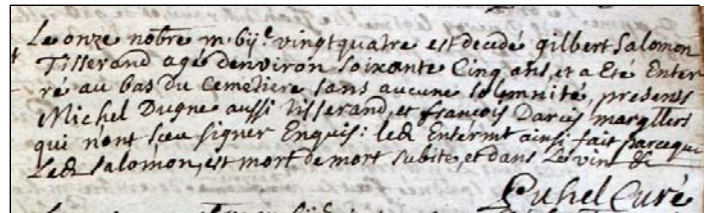 Le onze nobre m. bijc. vingt quatre est decedé gilbert Salomon
Tisserand agé denviron soixante Cinq ans, et a Eté Enter
ré au bas du Cemetiere sans aucune solemnité, presents
Michel Dugne aussi tisserand, et françois Darcis margllers
qui n'ont sceu signer Enquis: led Entermt ainsi fait parceque
Led Salomon, est mort de mort subite, et dans Le vin &c
Puhel Curé